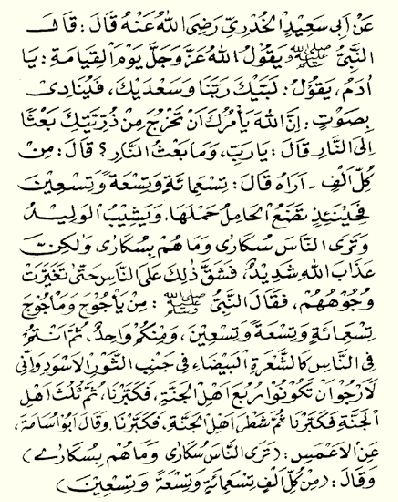 عَنْ اَبِى سَعِيْدِ اِلْخُدْرِيِّ رَضِىَ اللهُ عَنْهُ قَالَ: قَالَ
النَّبِىُّ ﷺ يَقُوْلُ اللهُ عَزَّ وَجَلَّ يَوْمَ الْقِيَامَةِ: يَا
اٰدَمُ، يَقُوْلُ: لَبَّيْكَ رَبَّنَا وَسَعْدَيْكَ، فَيُنَادٰى
بِصَوْتٍ: اِنَّ اللهَ يَأْمُرُكَ اَنْ تُخْرِجَ مِنْ ذُرِّيَّتِكَ بَعْثًا
اِلَى النَّارِ قَالَ: يَا رَبِّ، وَمَا بَعْثُ النَّارِ؟ قَالَ: مِنْ
كُلِّ اَلْفٍ - اُرَاهُ قَالَ: تِسْعَمِائَةٍ وَتِسْعَةً وَّتِسْعِيْنَ
فَحِيْنَئِذٍ تَضَعُ الْحَامِلُ حَمْلَهَا، وَيَشِيْبُ الْوَلِيْدُ
وَتَرَى النَّاسَ سُكَارٰى وَمَا هُمْ بِسُكَارٰى وَلٰكِنَّ
عَذَابَ اللهِ شَدِيْدٌ، فَشَقَّ ذٰلِكَ عَلَى النَّاسِ حَتّٰى تَغَيَّرَتْ
وُجُوْهُهُمْ، فَقَالَ النَّبِىُّ ﷺ: مِنْ يَأْجُوْجَ وَمَأْجُوْجَ
تِسْعَمِائَةٍ وَتِسْعَةً وَتِسْعِيْنَ، وَمِنْكُمْ وَاحِدٌ، ثُمَّ اَنْتُمْ
فِى النَّاسِ كَالشَّعْرَةِ الْبَيْضَاءِ فِى جَنْبِ الثَّوْرِ الْاَسْوَدِ وَاِنِّى
لَاَرْجُوْ اَنْ تَكُوْنُوْا رُبُعَ اَهْلِ الْجَنَّةِ، فَكَبَّرْنَا، ثُمَّ ثُلُثَ اَهْلِ
الْجَنَّةِ فَكَبَّرْنَا ثُمَّ شَطْرَ اَهْلِ الْجَنَّةِ، فَكَبَّرْنَا. وَقَالَ اَبُوْ اُسَامَةَ،
عَنِ الْاَعْمَشِ: (تَرَى النَّاسَ سُكَارٰى وَمَا هُمْ بِسُكَارٰى)
وَقَالَ: (مِنْ كُلِّ اَلْفٍ تِسْعَمِائَةٍ وَتِسْعَةً وَّتِسْعِيْنَ)